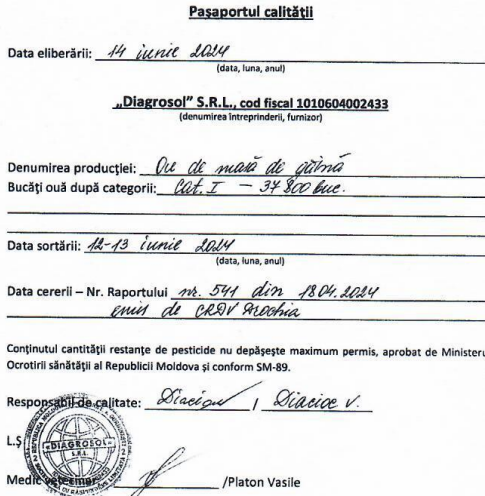 Paşaportul calității
Data eliberării: 14 iunie 2024
(data, luna, anul)
„Diagrosol” S.R.L., cod fiscal 1010604002433
(denumirea întreprinderii, furnizor)
Denumirea producției: Ou de masă de găină
Bucăți ouă după categorii: Cat. I – 37 800 buc.
Data sortării: 12-13 iunie 2024
(data, luna, anul)
Data cererii – Nr. Raportului nr. 541 din 18.04.2024
emis de CRDV Drochia
Conținutul cantității restanțe de pesticide nu depășește maximum permis, aprobat de Ministeru
Ocrotirii sănătății al Republicii Moldova și conform SM-89.
Responsabil de calitate: / Diacioc V.
L.Ș
DIAGROSOL
S.R.L.
Medic veterinar /Platon Vasile